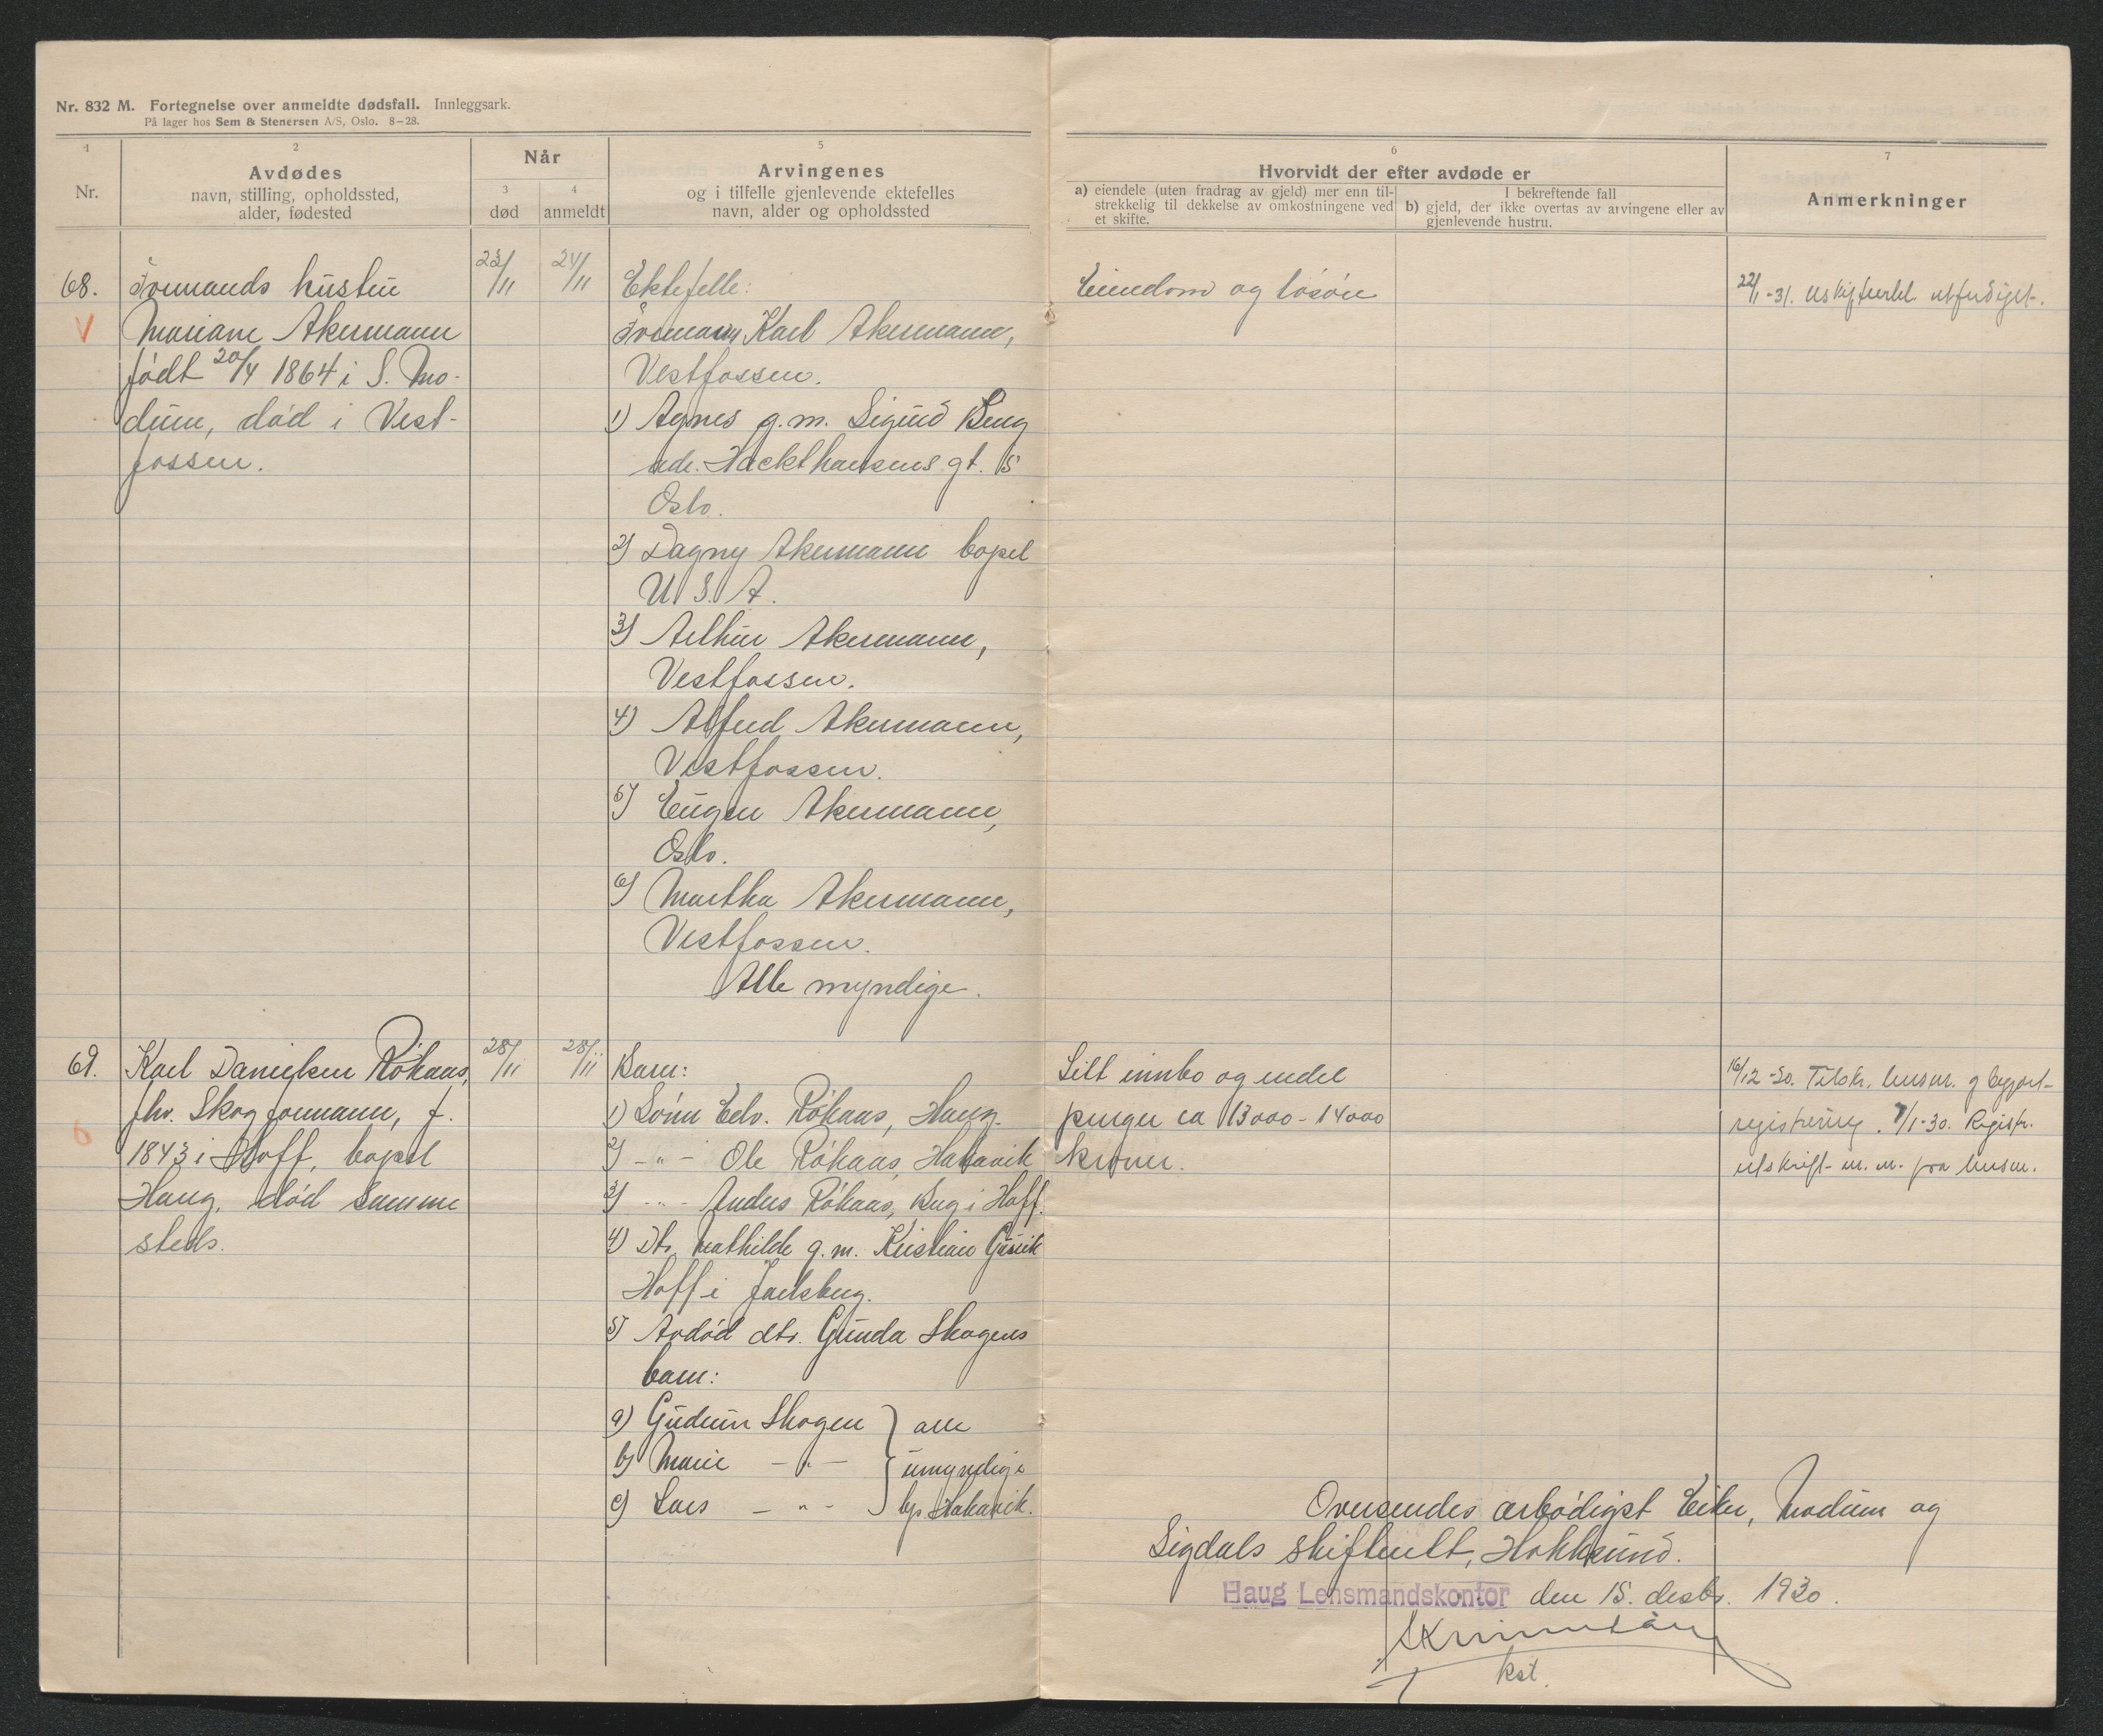 Nr. 832 M. Fortegnelse over anmeldte dødsfall. Innleggsark.
På lager hos Sem & Stenersen A/S, Oslo. 8–28.
1
Nr.
2
Avdødes
navn, stilling, opholdssted,
alder, fødested
Når
3
død
4
anmeldt
5
Arvingenes
og i tilfelle gjenlevende ektefelles
navn, alder og opholdssted
6
Hvorvidt der efter avdøde er
a) eiendele (uten fradrag av gjeld) mer enn til-
strekkelig til dekkelse av omkostningene ved
et skifte.
I bekreftende fall
b) gjeld, der ikke overtas av arvingene eller av
gjenlevende hustru.
7
Anmerkninger
68.
V
Formands hustru
Mariane Akermann
født 20/4 1864 i S. Mo-
dum, død i Vest-
fossen.
23/11
24/11
Ektefelle:
Formann Karl Akermann,
Vestfossen.
1) Agnes g.m. Sigurd Berg
adr. Hackthausens gt. 5
Oslo.
2) Dagny Akermann bopel
U.S.A.
3) Arthur Akermann,
Vestfossen.
4) Alfred Akermann,
Vestfossen.
5) Eugen Akermann,
Oslo.
6) Martha Akermann,
Vestfossen.
Alle myndige.
Eiendom og løsøre
22/1-31. uskifteerkl. utferdiget.
69.
6
Karl Danielsen Røkaas,
fhv. Skogformann, f.
1843 i Hoff, bopel
Haug, død samme
steds.
28/11
28/11
Barn:
1) Sønn Edv. Røkaas, Haug.
2) -"- Ole Røkaas, Hakavik
3) -"- Anders Røkaas, Berg i Hoff.
4) Dtr. Mathilde g.m. Kristian
Hoff i Jarlsberg.
5) Avdød dtr. Gunda Skogens
barn:
a) Gudrun Skogen } alle
b) Marie -"- umyndige
c) Lars -"- bp. Hakavik.
Litt innbo og endel
penger ca 13000 - 14000
kroner.
16/12-30. Tilskr. lensm. og begjært
registrering. 7/1-30. Registr.
utskrift m.m. fra lensm.
Oversendes ærbødigst Eiker, Modum og
Sigdals skifterett, Hokksund.
Haug Lensmandskontor den 15. desbr. 1930.
kst.